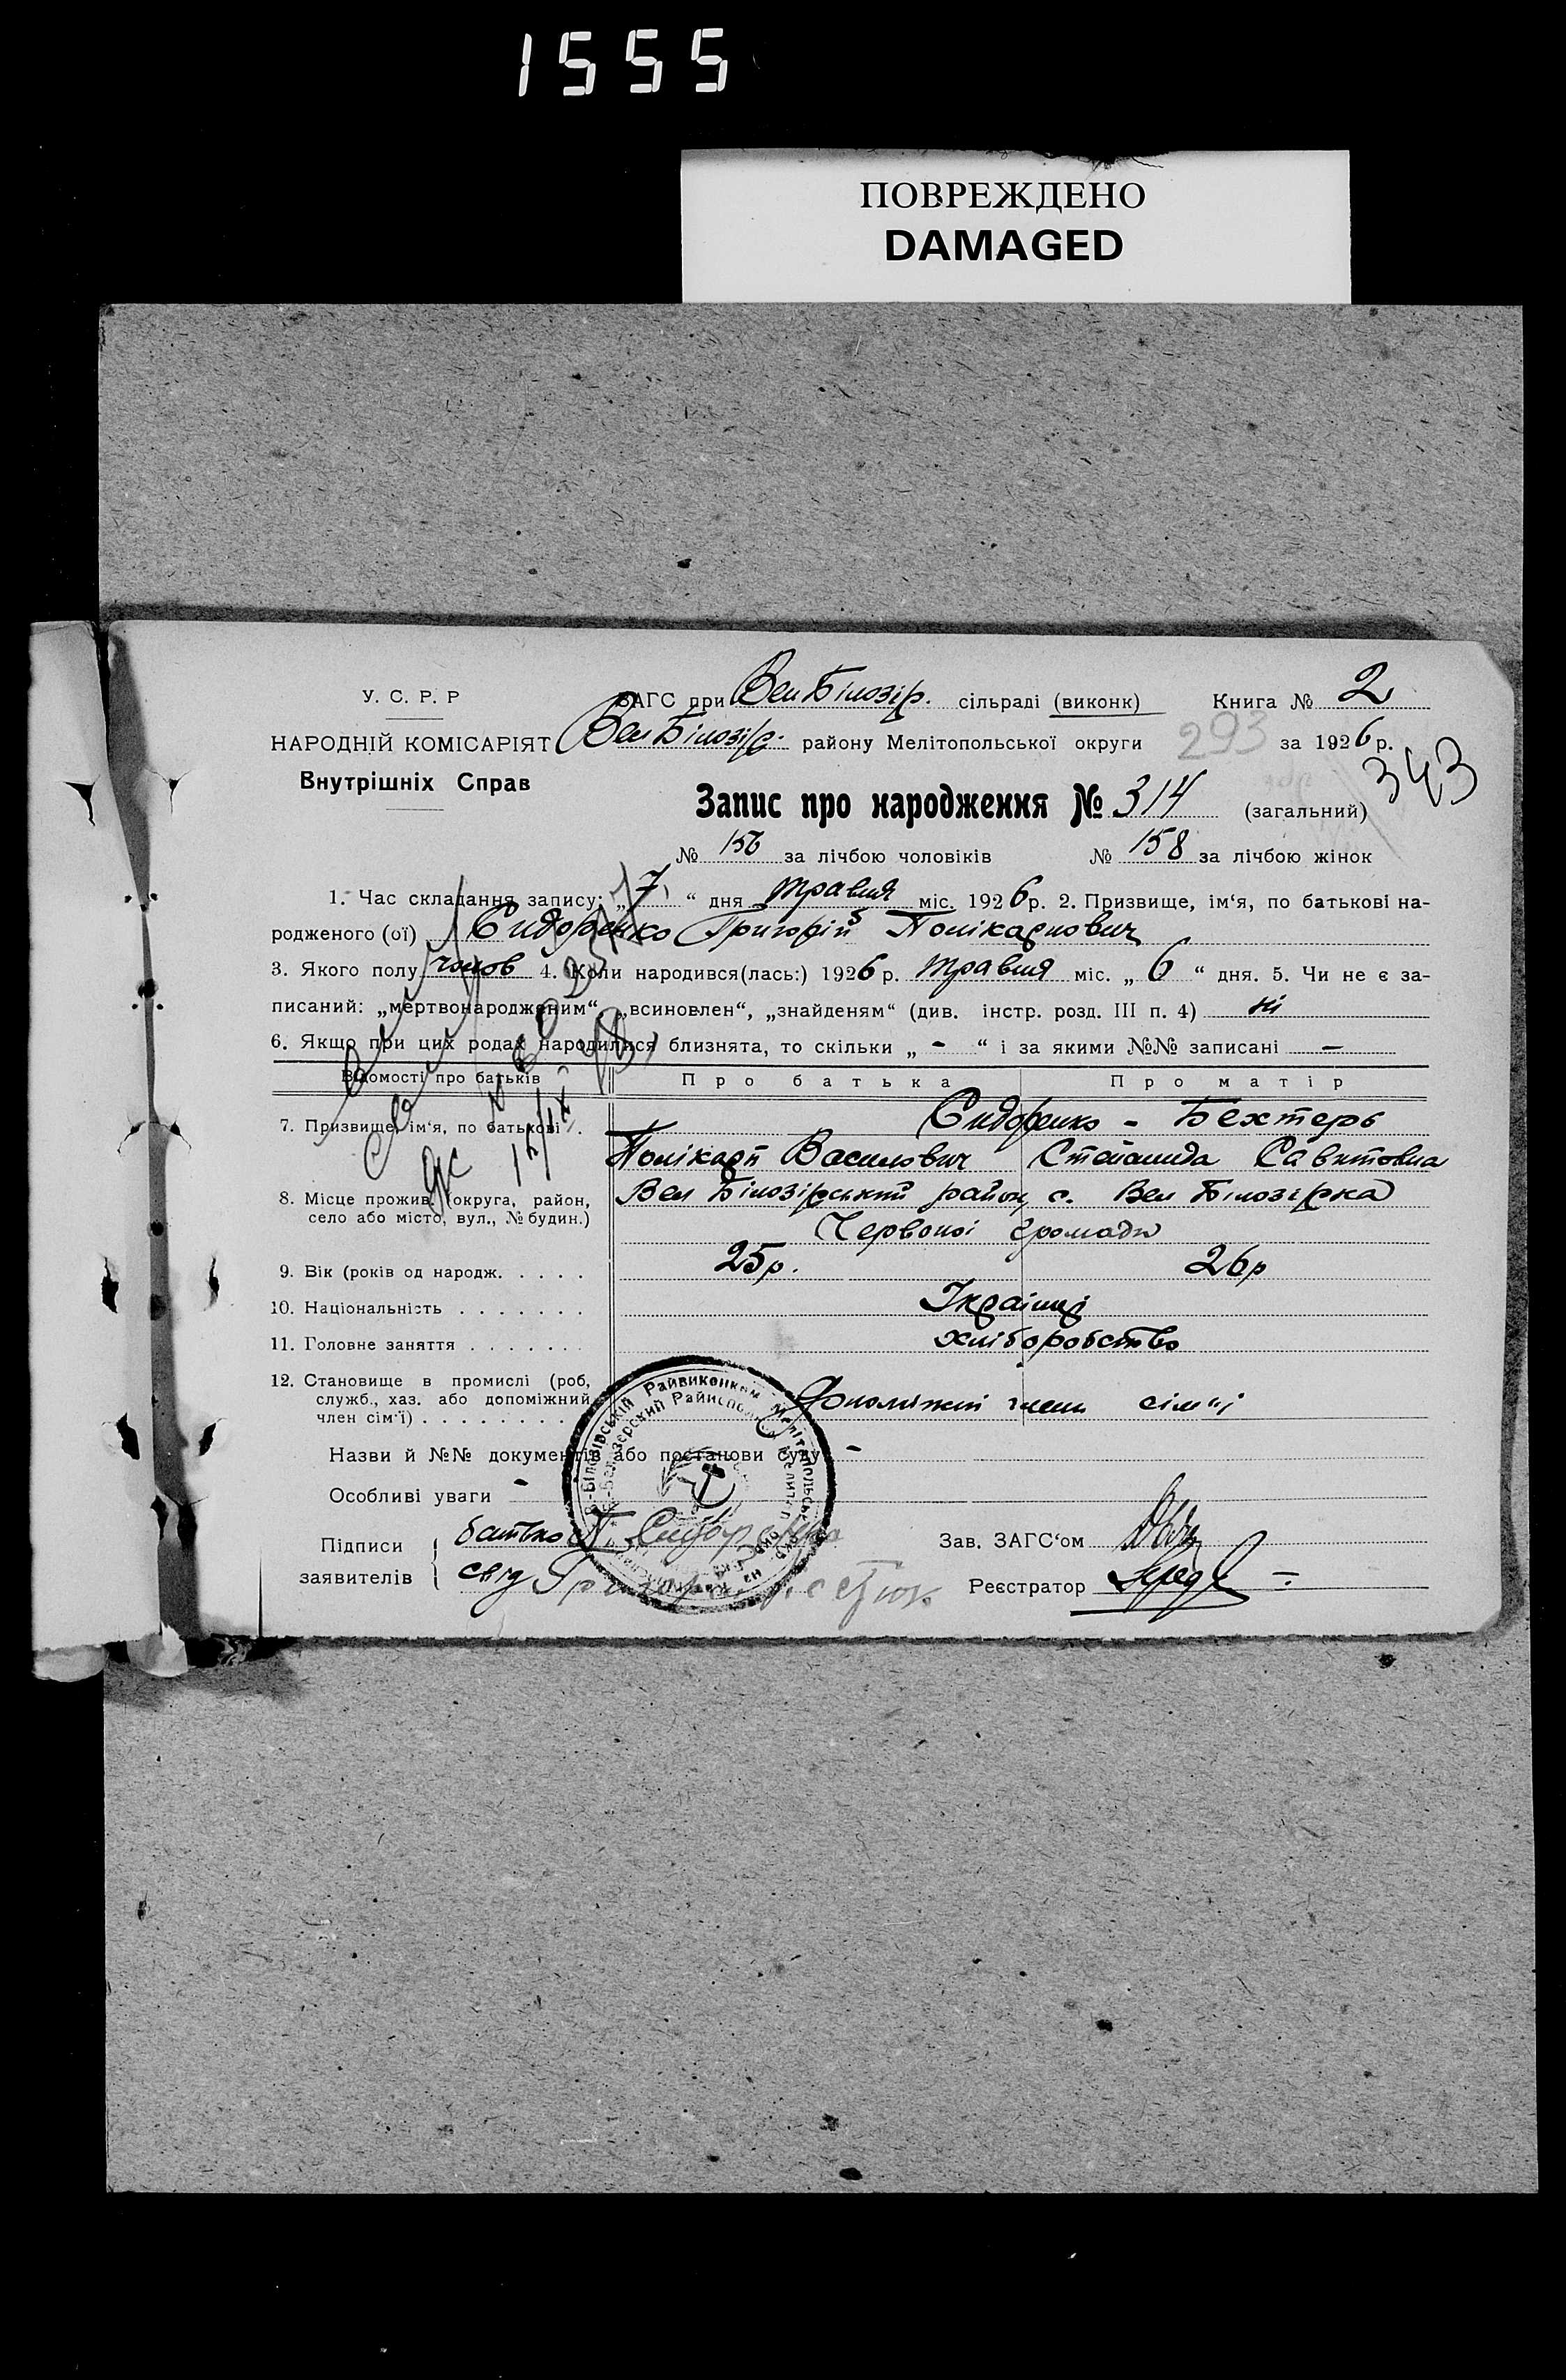 1555
ПОВРЕЖДЕНО
DAMAGED
У. С. Р. Р
НАРОДНІЙ КОМІСАРІЯТ
Внутрішніх Справ
ЗАГС при Вел Білозір. сільраді (виконк) Книга № 2
Вел Білозір. району Мелітопольської округи 293 за 1926 р.
343
Запис про народження № 314 (загальний)
№ 156 за лічбою чоловіків № 158 за лічбою жінок
1. Час складання запису: „7“ дня травня міс. 1926 р. 2. Призвище, ім'я, по батькові на-
родженого (ої) Сидоренко Григорій Полікарпович
3. Якого полу чолов 4. Коли народився(лась:) 1926 р. травня міс. „6“ дня. 5. Чи не є за-
писаний: „мертвонародженим“, „всиновлен“, „знайденям“ (див. інстр. розд. III п. 4) ні
6. Якщо при цих родах народилися близнята, то скільки „-“ і за якими №№ записані —
Відомості про батьків Про батька Про матір
7. Призвище, ім'я, по батькові . Сидоренко - Бехтерь
Полікарп Василович Степанида Савитовна
8. Місце прожив. (округа, район, село або місто, вул., № будин.) Вел Білозірський район, с. Вел Білозірка
Червоної громади
9. Вік (років од народж. . . . . 25 р. 26 р
10. Національність . . . . . . . Українці
11. Головне заняття . . . . . . . хліборобство
12. Становище в промислі (роб, служб., хаз. або допоміжний член сім'ї) . . . . . . . . Допоміжні члени сім"ї
Назви й №№ документів або постанови суду -
Особливі уваги -
Підписи заявителів { батько П. Сидоренко
свід Григорий
Зав. ЗАГС'ом
Реєстратор